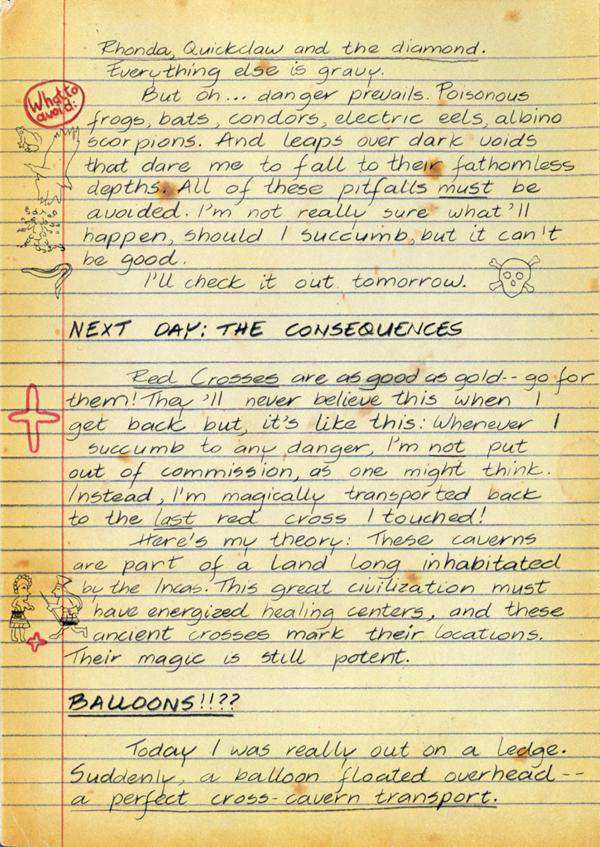 Rhonda, Quickclaw and the diamond.
Everything else is gravy.
What to
avoid:
But oh... danger prevails. Poisonous
frogs, bats, condors, electric eels, albino
scorpions. And leaps over dark voids
that dare me to fall to their fathomless
depths. All of these pitfalls must be
avoided. I'm not really sure what'll
happen, should I succumb, but it can't
be good.
I'll check it out tomorrow.
NEXT DAY: THE CONSEQUENCES
Red Crosses are as good as gold--go for
them! They'll never believe this when I
get back but, it's like this: Whenever I
succumb to any danger, I'm not put
out of commission, as one might think.
Instead, I'm magically transported back
to the last red cross I touched!
Here's my theory: These caverns
are part of a land long inhabitated
by the Incas. This great civilization must
have energized healing centers, and these
ancient crosses mark their locations.
Their magic is still potent.
BALLOONS!!??
Today I was really out on a ledge.
Suddenly, a balloon floated overhead--
a perfect cross-cavern transport.